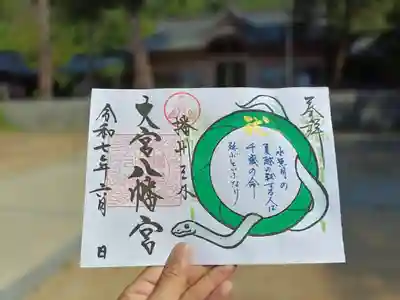 奉拝
水無月の
夏越の祓する人は
千歳の命
延ぶといふなり
播州三木
大宮八幡宮
令和七年六月 日